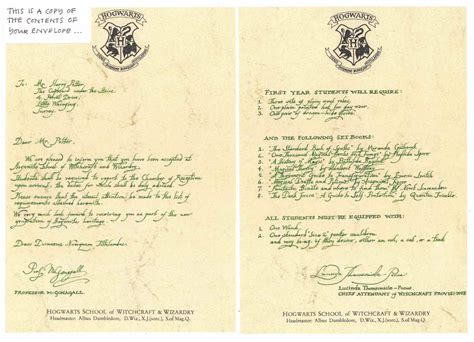 THIS IS A COPY OF
THE CONTENTS OF
YOUR ENVELOPE ...
HOGWARTS
To: Mr. Harry Potter,
The Cupboard under the Stairs,
4 Privet Drive,
Little Whinging,
Surrey.
Dear Mr. Potter,
We are pleased to inform you that you have been accepted at
Hogwarts School of Witchcraft and Wizardry.
Students shall be required to report to the Chamber of Reception
upon arrival, the dates for which shall be duly advised.
Please ensure that the utmost attention be made to the list of
requirements attached herewith.
We very much look forward to receiving you as part of the new
generation of Hogwarts heritage.
Draco Dormiens Nunquam Titillandus
Prof. McGonagall
PROFESSOR MCGONAGALL
HOGWARTS SCHOOL OF WITCHCRAFT & WIZARDRY
Headmaster: Albus Dumbledore, D.Wiz., X.J.(sorc.), S.of Mag.Q.
HOGWARTS
FIRST YEAR STUDENTS WILL REQUIRE:
1. Three sets of plain work robes.
2. One plain pointed hat for day wear.
3. One pair of dragon-hide gloves.
AND THE FOLLOWING SET BOOKS:
1. "The Standard Book of Spells" by Miranda Goshawk
2. "One Thousand Magical Herbs and Fungi" by Phyllida Spore
3. "A History of Magic" by Bathilda Bagshot
4. "Magical Theory" by Adalbert Waffling
5. "A Beginner's Guide to Transfiguration" by Emeric Switch
6. "Magical Drafts and Potions"
7. "Fantastic Beasts and Where to Find Them" by Newt Scamander
8. "The Dark Forces: A Guide to Self-Protection" by Quentin Trimble
ALL STUDENTS MUST BE EQUIPPED WITH:
1. One Wand
2. One standard size 2 pewter cauldron
and may bring, if they desire, either an owl, a cat, or a toad
Lucinda Thomsonicle-Pocus
LUCINDA THOMSONICLE-POCUS
CHIEF ATTENDANT OF WITCHCRAFT PROVISIONS
HOGWARTS SCHOOL OF WITCHCRAFT & WIZARDRY
Headmaster: Albus Dumbledore, D.Wiz., X.J.(sorc.), S.of Mag.Q.